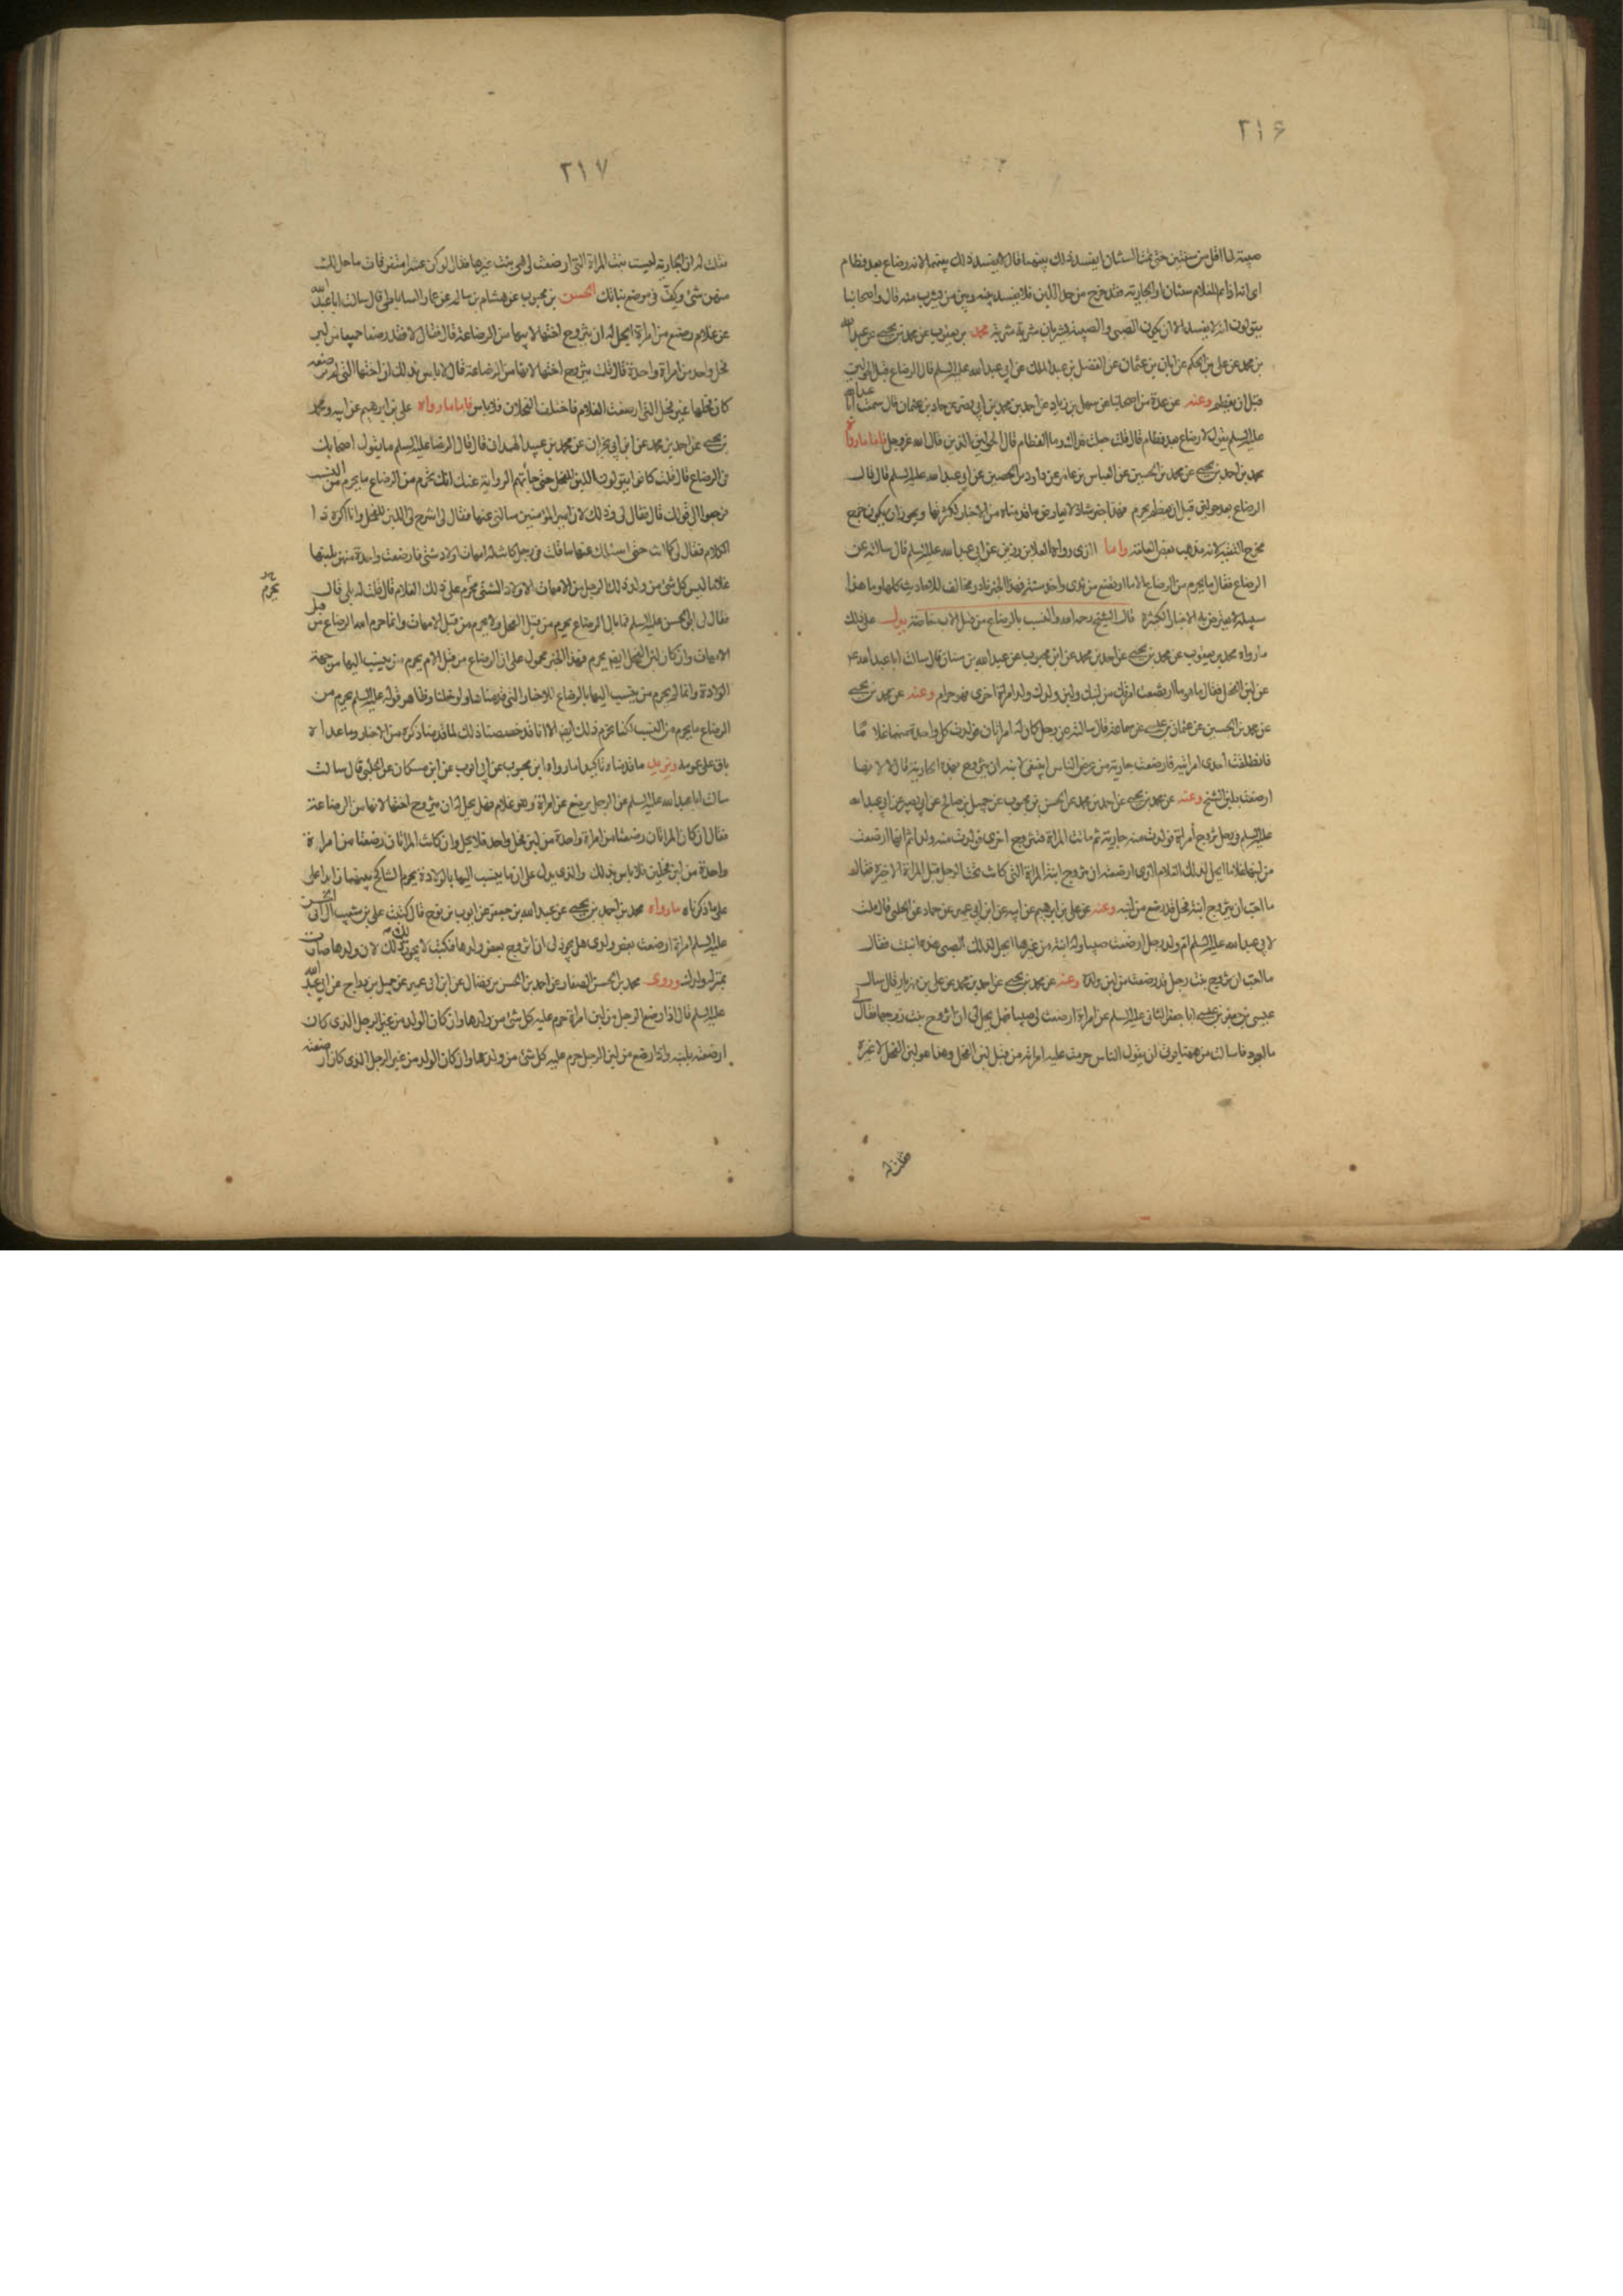 ٢١۶
صبية لها اقل من سنتين حتى تمت السنتان ايفسد ذلك بينهما قال لا يفسد ذلك بينهما لانه رضاع بعد فطام
اى انه اذا تم للغلام سنتان او الجارية فقد خرج من حد اللبن فلا يفسد بينه وبين من يشرب منه قال واصحابنا
يقولون انه لا يفسد الا ان يكون الصبى والصبية يشربان شربة شربة محمد بن يعقوب عن محمد بن يحيى عن عبد الله
بن محمد عن على بن الحكم عن ابان بن عثمان عن الفضل بن عبد الملك عن ابى عبد الله عليه السلم قال الرضاع قبل الحولين
قبل ان يفطم وعنه عن عدة من اصحابنا عن سهل بن زياد عن احمد بن محمد بن ابى نصر عن حماد بن عثمان قال سمعت ابا عبد الله
عليه السلم يقول لا رضاع بعد فطام قال قلت جعلت فداك وما الفطام قال الحولين الذين قال الله عز وجل فاما ما رواه
محمد بن احمد بن يحيى عن محمد بن الحسين عن العباس بن عامر عن داود بن الحصين عن ابى عبد الله عليه السلم قال قال
الرضاع بعد حولين قبل ان يفطم يحرم فهذا خبر شاذ لا يعارض ما قدمناه من الاخبار لكثرتها ويجوز ان يكون خرج
مخرج التقية لانه مذهب بعض العامة واما الذى رواه العلا بن رزين عن ابى عبد الله عليه السلم قال سالته عن
الرضاع فقال ما يحرم من الرضاع الا ما ارتضع من ثدى واحد سنة فهذا الخبر نادر مخالف للاحاديث كلها وما هذا
سبيله لا يعترض به الاخبار الكثيرة قال الشيخ رحمه الله والنسب بالرضاع من قبل الاب خاصة يدل على ذلك
ما رواه محمد بن يعقوب عن محمد بن يحيى عن احمد بن محمد عن ابن محبوب عن عبد الله بن سنان قال سالت ابا عبد الله ع
عن لبن الفحل فقال ما هو ما ارتضعت امراتك من لبنك ولبن ولدك ولد امراة اخرى فهو حرام وعنه عن محمد بن يحيى
عن محمد بن الحسين عن عثمان بن عيسى عن سماعة قال سالته عن رجل كان له امراتان فولدت كل واحدة منهما غلاما
فانطلقت احدى امراتيه فارضعت جارية من عرض الناس اينبغى لابنه ان يتزوج بهذه الجارية قال لا لانها
ارضعت بلبن الشيخ وعنه عن محمد بن يحيى عن احمد بن محمد عن الحسن بن محبوب عن جميل بن صالح عن ابى بصير عن ابى عبد الله
عليه السلم فى رجل تزوج امراة فولدت منه جارية ثم ماتت المراة فتزوج اخرى فولدت منه ولدا ثم انها ارضعت
من لبنها غلاما ايحل لذلك الغلام الذى ارضعته ان يتزوج ابنة المراة التى كانت تحت الرجل قبل المراة الاخيرة فقال
ما احب ان يتزوج ابنة فحل قد رضع من لبنه وعنه عن على بن ابرهيم عن ابيه عن ابن ابى عمير عن حماد عن الحلبى قال قلت
لابى عبد الله عليه السلم ام ولد رجل ارضعت صبيا وله ابنة من غيرها ايحل لذلك الصبى هذه الابنة فقال
ما احب ان يتزوج بنت رجل قد رضعت من لبن ولده وعنه عن محمد بن يحيى عن احمد بن محمد عن على بن مهزيار قال سال
عيسى بن جعفر بن عيسى ابا جعفر الثانى عليه السلم عن امراة ارضعت لى صبيا فهل يحل لى ان اتزوج بنت زوجها فقال لى
ما اجود ما سالت من هيهنا يوتى ان يقول الناس حرمت عليه امراته من قبل لبن الفحل وهذا هو لبن الفحل لا غيره
فقلت له
٢١٧
فقلت له ان الجارية ليست بنت المراة التى ارضعت لى هى بنت غيرها فقال لو كن عشرا متفرقات ما حل لك
منهن شئ وكن فى موضع بناتك الحسن بن محبوب عن هشام بن سالم عن عمار الساباطى قال سالت ابا عبد الله
عن غلام رضع من امراة ايحل له ان يتزوج اختها لابيها من الرضاعة قال فقال لا فقد رضعا جميعا من لبن
فحل واحد من امراة واحدة قال قلت يتزوج اختها لامها من الرضاعة قال لا باس بذلك ان اختها التى لم ترضعه
كان فحلها غير فحل التى ارضعت الغلام فاختلف الفحلان فلا باس فاما ما رواه على بن ابرهيم عن ابيه ومحمد
بن يحيى عن احمد بن محمد عن ابن ابى نجران عن محمد بن عبيد الهمدانى قال قال الرضا عليه السلم ما يقول اصحابك
فى الرضاع قال قلت كانوا يقولون اللبن للفحل حتى جاءتهم الرواية عنك انك تحرم من الرضاع ما يحرم من النسب
فرجعوا الى قولك قال فقال لى وذلك لان امير المؤمنين سالنى عنها فقال لى اشرح لى اللبن للفحل وانا اكره
الكلام فقال لى كما انت حتى اسئلك عنها ما قلت فى رجل كانت له امهات اولاد شتى فارضعت واحدة منهن بلبنها
غلاما اليس كل شئ من ولد ذلك الرجل من الامهات الاولاد الشتى محرم على ذلك الغلام قال قلت له بلى قال
يحرم
فقال لى ابو الحسن عليه السلم فما بال الرضاع يحرم من قبل الفحل ولا يحرم من قبل الامهات وانما حرم الله الرضاع من قبل
الامهات وان كان لبن الفحل ايضا يحرم فهذا الخبر محمول على ان الرضاع من قبل الام يحرم من ينسب اليها من جهة
الولادة وانما لم يحرم من ينسب اليها بالرضاع للاخبار التى قدمناها ولو خلينا وظاهر قوله عليه السلم يحرم من
الرضاع ما يحرم من النسب لكنا نحرم ذلك ايضا الا انا قد خصصنا ذلك لما قدمنا ذكره من الاخبار وما عداه
باق على عمومه ويزيد ما قدمناه تاكيدا ما رواه ابن محبوب عن ابى ايوب عن ابن مسكان عن الحلبى قال سالت
سالت ابا عبد الله عليه السلم عن الرجل يرضع من امراة وهو غلام فهل يحل له ان يتزوج اختها لامها من الرضاعة
فقال ان كان المراتان رضعتا من امراة واحدة من لبن فحل واحد فلا يحل وان كانت المراتان رضعتا من امراة
واحدة من لبن فحلين فلا باس بذلك والذى يدل على ان ما ينسب اليها بالولادة يحرم التناكح بينهما زايدا على
على ما ذكرناه ما رواه محمد بن احمد بن يحيى عن عبد الله بن جعفر عن ايوب بن نوح قال كتب على بن شعيب الى ابى الحسن
عليه السلم امراة ارضعت بعض ولدى هل يجوز لى ان اتزوج بعض ولدها فكتب لا يجوز لك ذلك لان ولدها صارت
بمنزلة ولدك وروى محمد بن الحسن الصفار عن احمد بن الحسن بن فضال عن ابن ابى عمير عن جميل بن دراج عن ابى عبد الله
عليه السلم قال اذا رضع الرجل من لبن امراة حرم عليه كل شئ من ولدها وان كان الولد من غير الرجل الذى كان
ارضعته بلبنه واذا رضع من لبن الرجل حرم عليه كل شئ من ولدها وان كان الولد من غير الرجل الذى كان ارضعته